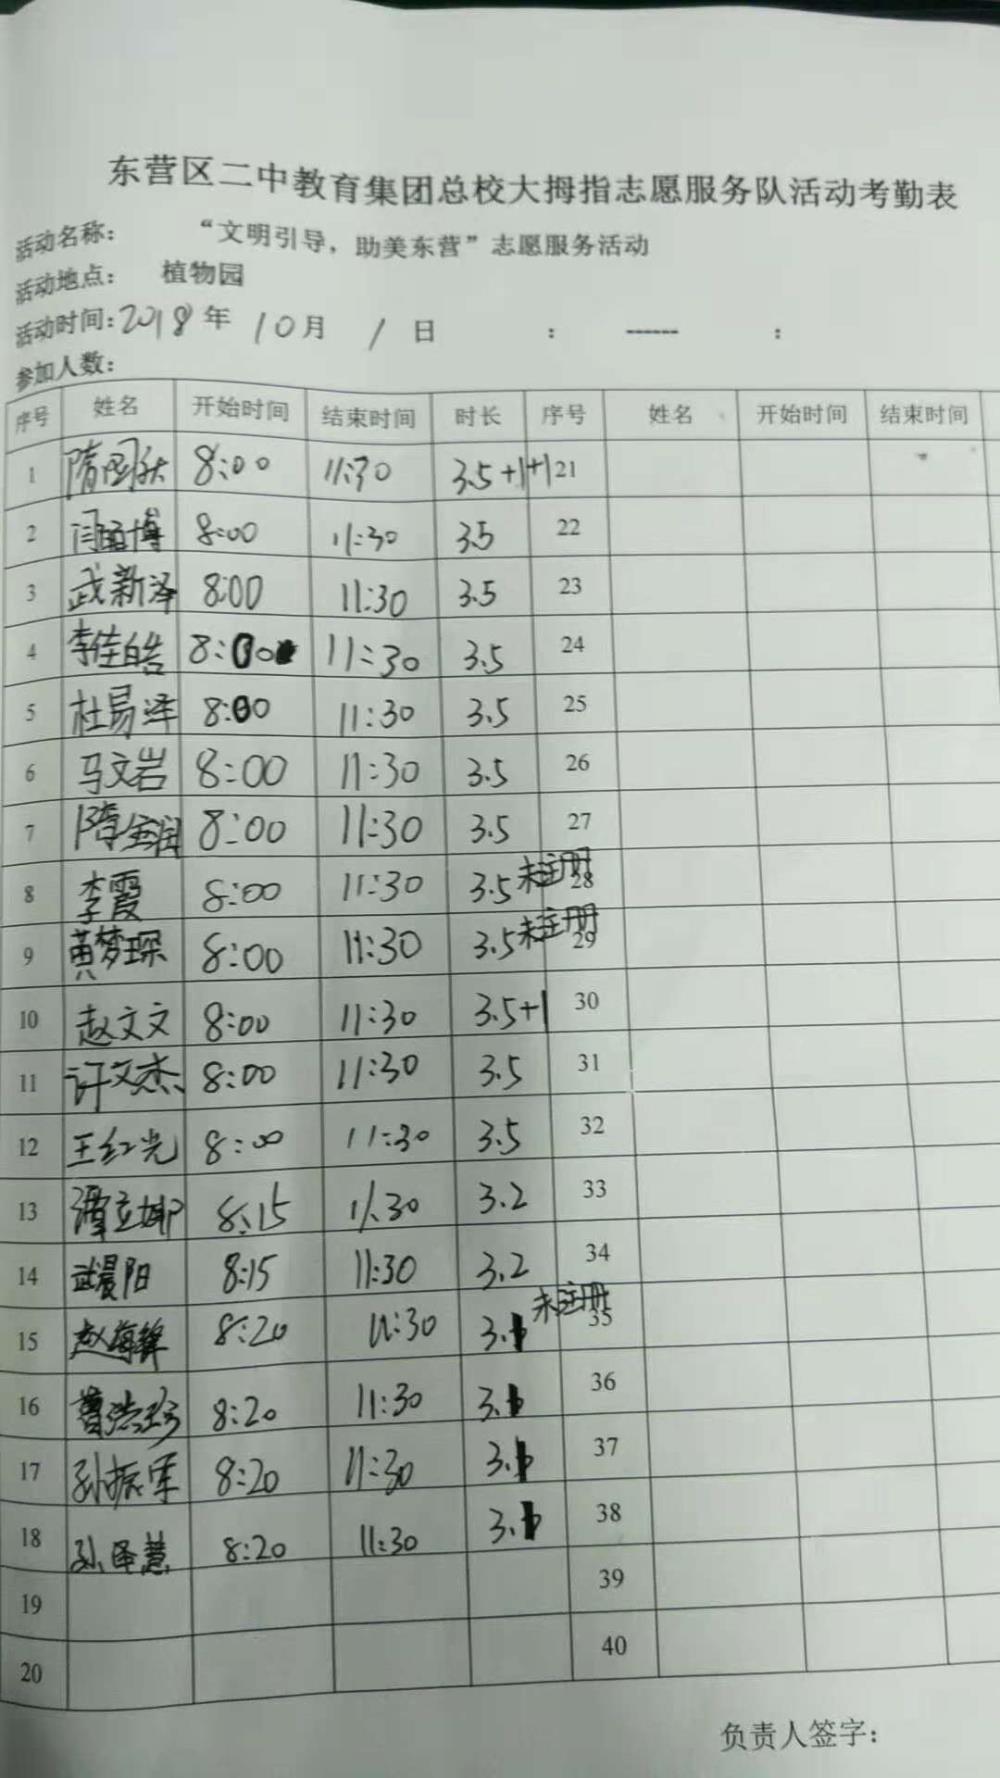 东营区二中教育集团总校大拇指志愿服务队活动考勤表
活动名称： “文明引导，助美东营”志愿服务活动
活动地点： 植物园
活动时间：2018年 10月 1日 ： ------ ：
参加人数：
序号 姓名 开始时间 结束时间 时长 序号 姓名 开始时间 结束时间
1 隋 8:00 11:30 3.5+1+1 21
2 闫 博 8:00 11:30 3.5 22
3 武新泽 8:00 11:30 3.5 23
4 李佳皓 8:00 11:30 3.5 24
5 杜易泽 8:00 11:30 3.5 25
6 马文岩 8:00 11:30 3.5 26
7 隋 润 8:00 11:30 3.5 27
8 李霞 8:00 11:30 3.5 未注册 28
9 黄梦琛 8:00 11:30 3.5 未注册 29
10 赵文文 8:00 11:30 3.5+1 30
11 许文杰 8:00 11:30 3.5 31
12 王红光 8:00 11:30 3.5 32
13 谭立娜 8:15 11:30 3.2 33
14 武晨阳 8:15 11:30 3.2 34
15 赵海锋 8:20 11:30 3.1 未注册 35
16 曹浩 8:20 11:30 3.1 36
17 孙振军 8:20 11:30 3.1 37
18 孙泽慧 8:20 11:30 3.1 38
19 39
20 40
负责人签字：